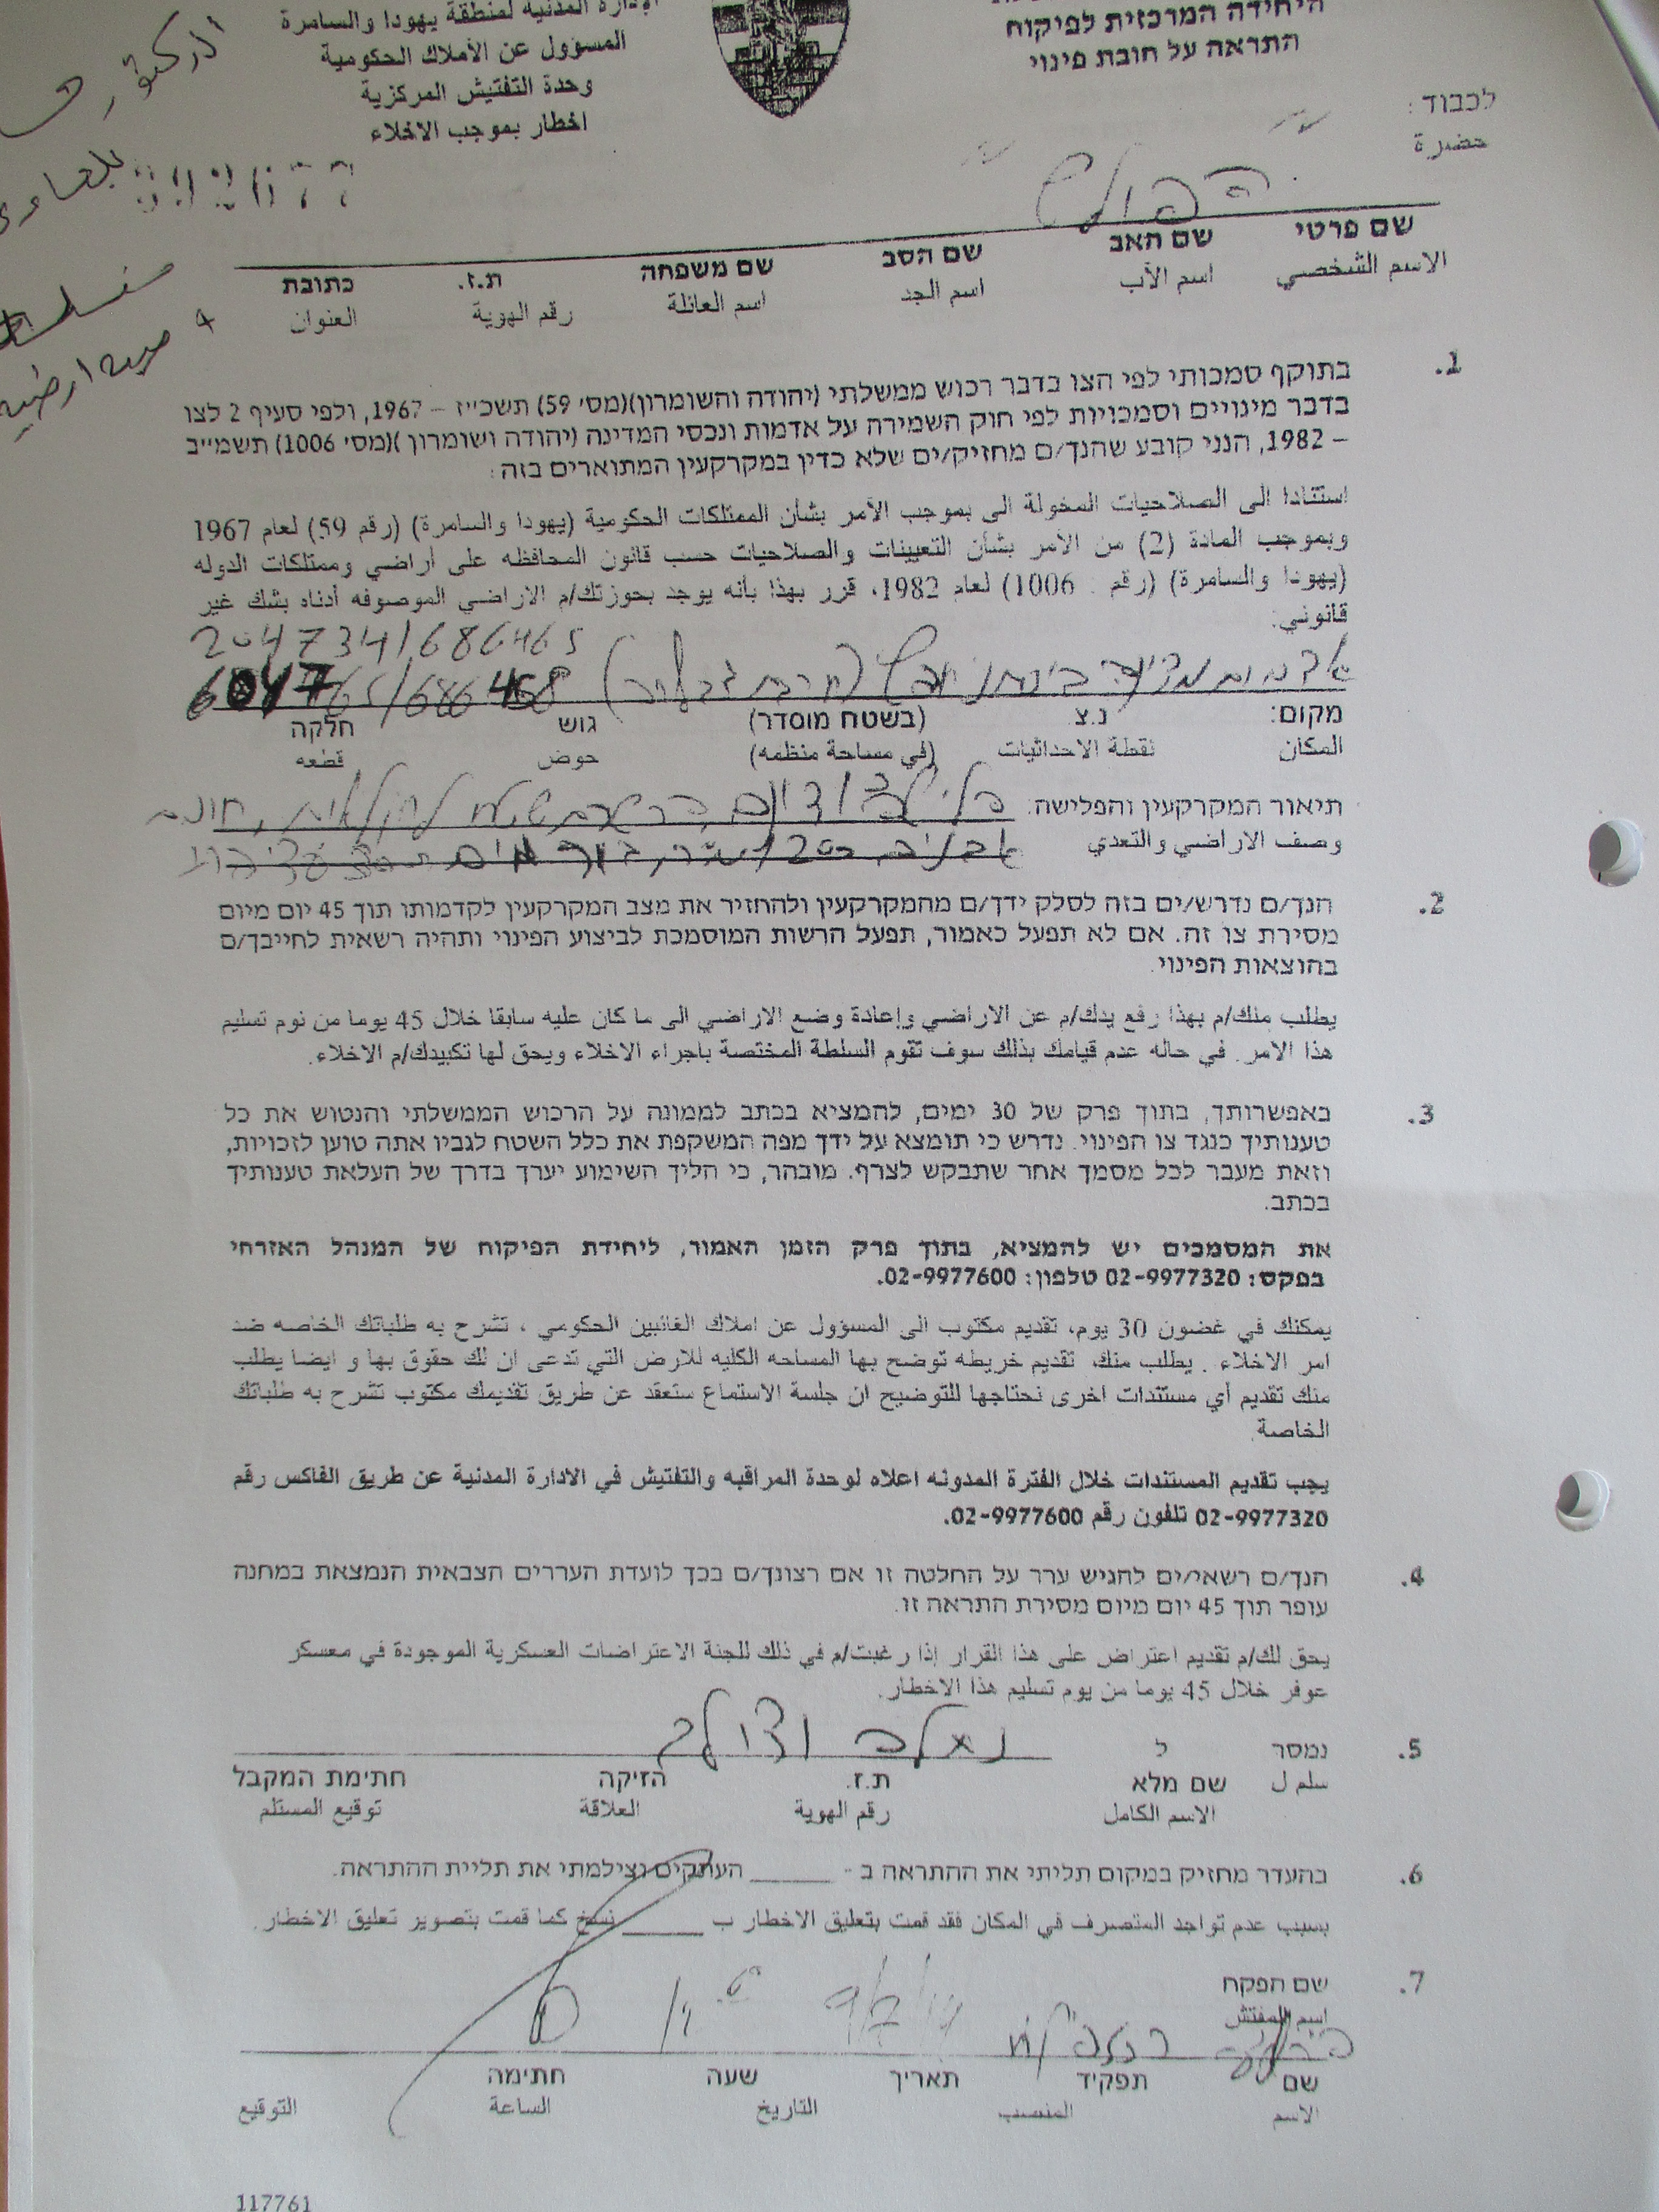 היחידה המרכזית לפיקוח
התראה על חובת פינוי
الإدارة المدنية لمنطقة يهودا والسامرة
المسؤول عن الأملاك الحكومية
وحدة التفتيش المركزية
اخطار بموجب الاخلاء
الدكتور
לכבוד:
حضرة
הפולש
שם פרטי שם האב שם הסב שם משפחה ת.ז. כתובת
الاسم الشخصي اسم الأب اسم الجد اسم العائلة رقم الهوية العنوان
1. בתוקף סמכותי לפי הצו בדבר רכוש ממשלתי (יהודה והשומרון)(מס׳ 59) תשכ״ז – 1967, ולפי סעיף 2 לצו
בדבר מינויים וסמכויות לפי חוק השמירה על אדמות ונכסי המדינה (יהודה ושומרון )(מס׳ 1006) תשמ״ב
– 1982, הנני קובע שהנך/ם מחזיק/ים שלא כדין במקרקעין המתוארים בזה:
استنادا الى الصلاحيات المخولة الي بموجب الأمر بشأن الممتلكات الحكومية (يهودا والسامرة) (رقم 59) لعام 1967
وبموجب المادة (2) من الأمر بشأن التعيينات والصلاحيات حسب قانون المحافظه على أراضي وممتلكات الدوله
(يهودا والسامرة) (رقم : 1006) لعام 1982، قرر بهذا بأنه يوجد بحوزتك/م الاراضي الموصوفه أدناه بشك غير
قانوني:
204734/686465
אדמות מדינה
מקום: נ.צ (בשטח מוסדר) גוש חלקה
المكان نقطة الاحداثيات (في مساحة منظمه) حوض قطعه
תיאור המקרקעין והפלישה:
وصف الاراضي والتعدي
2. הנך/ם נדרש/ים בזה לסלק ידך/ם מהמקרקעין ולהחזיר את מצב המקרקעין לקדמותו תוך 45 יום מיום
מסירת צו זה. אם לא תפעל כאמור, תפעל הרשות המוסמכת לביצוע הפינוי ותהיה רשאית לחייבך/ם
בהוצאות הפינוי.
يطلب منك/م بهذا رفع يدك/م عن الاراضي وإعادة وضع الاراضي الى ما كان عليه سابقا خلال 45 يوما من نوم تسليم
هذا الامر. في حاله عدم قيامك بذلك سوف تقوم السلطة المختصة باجراء الاخلاء ويحق لها تكبيدك/م الاخلاء.
3. באפשרותך, בתוך פרק של 30 ימים, להמציא בכתב לממונה על הרכוש הממשלתי והנטוש את כל
טענותיך כנגד צו הפינוי. נדרש כי תומצא על ידך מפה המשקפת את כלל השטח לגביו אתה טוען לזכויות,
וזאת מעבר לכל מסמך אחר שתבקש לצרף. מובהר, כי הליך השימוע יערך בדרך של העלאת טענותיך
בכתב.
את המסמכים יש להמציא, בתוך פרק הזמן האמור, ליחידת הפיקוח של המנהל האזרחי
בפקס: 02-9977320 טלפון: 02-9977600.
يمكنك في غضون 30 يوم، تقديم مكتوب الى المسؤول عن املاك الغائبين الحكومي ، تشرح به طلباتك الخاصه ضد
امر الاخلاء . يطلب منك، تقديم خريطه توضح بها المساحه الكليه للارض التي تدعى ان لك حقوق بها و ايضا يطلب
منك تقديم أي مستندات اخرى نحتاجها للتوضيح ان جلسة الاستماع ستعقد عن طريق تقديمك مكتوب تشرح به طلباتك
الخاصة.
يجب تقديم المستندات خلال الفترة المدونه اعلاه لوحدة المراقبه والتفتيش في الادارة المدنية عن طريق الفاكس رقم
02-9977320 تلفون رقم 02-9977600.
4. הנך/ם רשאי/ים להגיש ערר על החלטה זו אם רצונך/ם בכך לועדת העררים הצבאית הנמצאת במחנה
עופר תוך 45 יום מיום מסירת התראה זו.
يحق لك/م تقديم اعتراض على هذا القرار إذا رغبت/م في ذلك للجنة الاعتراضات العسكرية الموجودة في معسكر
عوفر خلال 45 يوما من يوم تسليم هذا الاخطار.
5. נמסר ל
سلم ل שם מלא ת.ז. הזיקה חתימת המקבל
الاسم الكامل رقم الهوية العلاقة توقيع المستلم
6. בהעדר מחזיק במקום תליתי את ההתראה ב - ______ העתקים וצילמתי את תליית ההתראה.
بسبب عدم تواجد المتصرف في المكان فقد قمت بتعليق الاخطار ب ______ نسخ كما قمت بتصوير تعليق الاخطار.
7. שם הפקח
اسم المفتش
שם תפקיד תאריך שעה חתימה
الاسم المنصب التاريخ الساعة التوقيع
117761